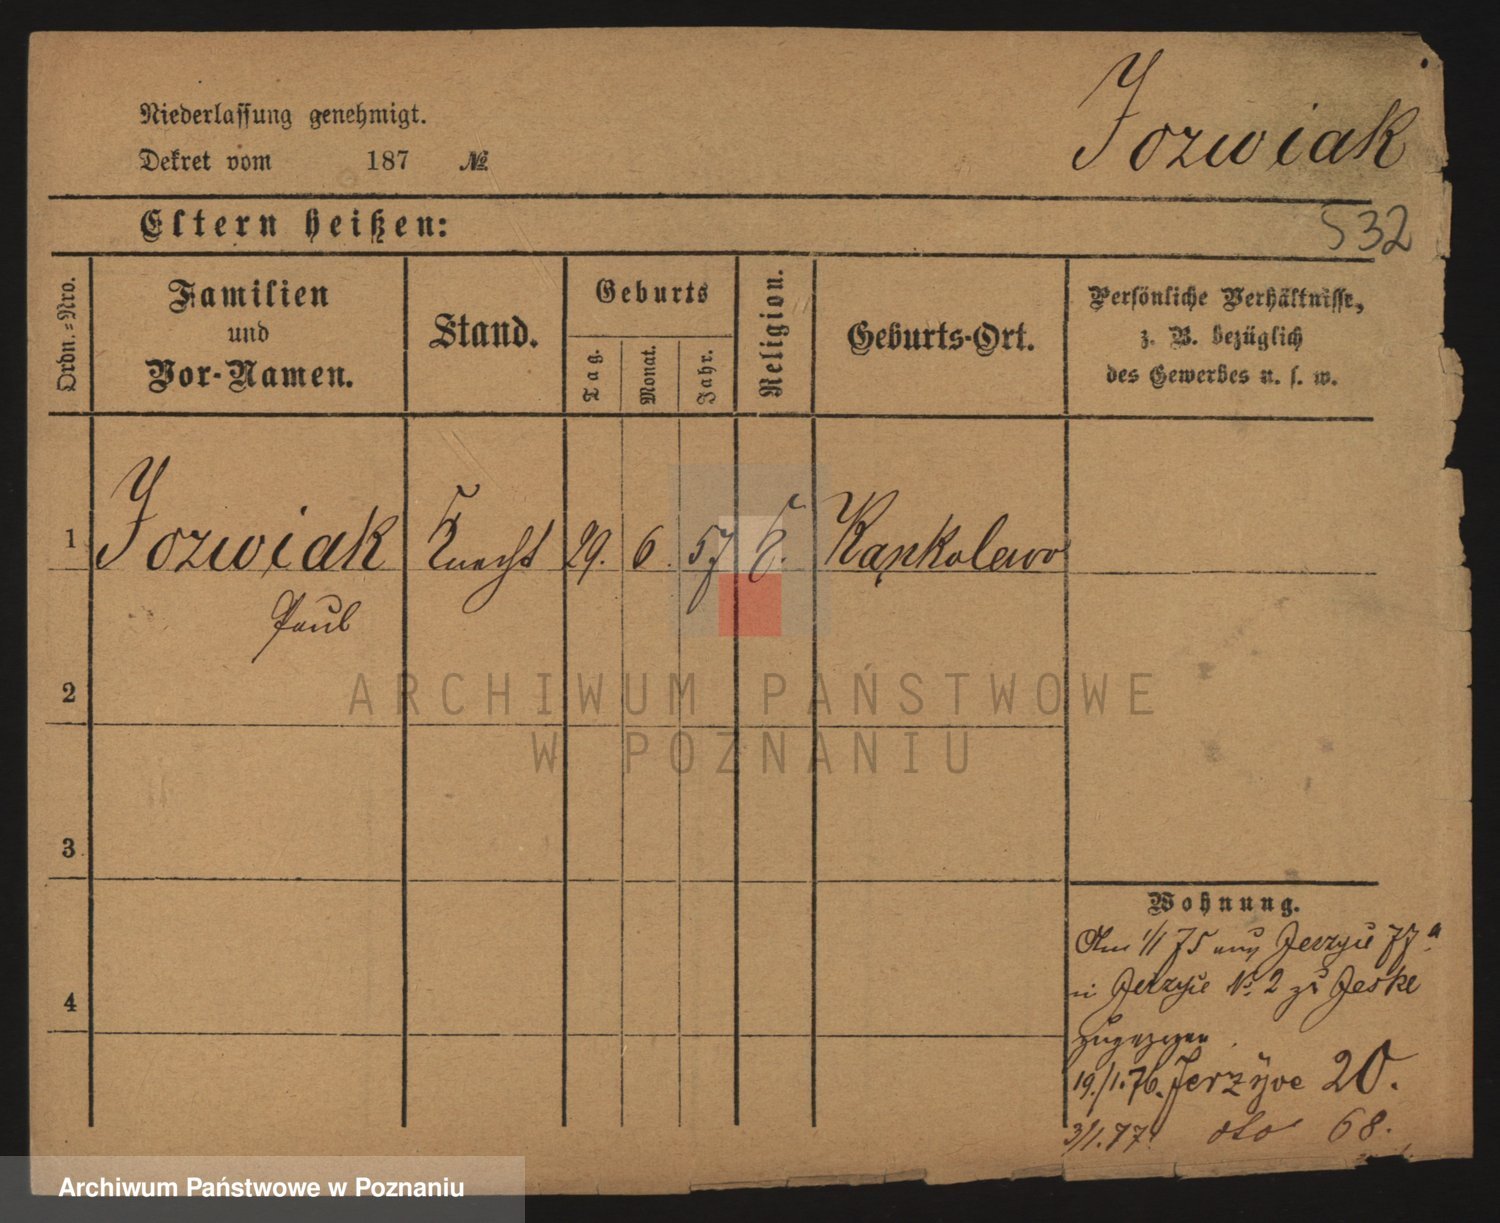 Jozwiak
Niederlassung genehmigt.
Dekret vom 187 №
Eltern heißen:
532
Ordn.-Nro.
Familien
und
Vor-Namen.
Stand.
Geburts
Tag.
Monat.
Jahr.
Religion.
Geburts-Ort.
Persönliche Verhältnisse,
z. B. bezüglich
des Gewerbes u. s. w.
1 Jozwiak Knecht 29. 6. 57 k. Kąnkolewo
Paul
2
3
4
Wohnung.
Am 1/1 75 aus 77a
in No 2 zu Jeske
zugezogen
19./1.76. Jerzyce 20.
3/1.77. dto 68.
ARCHIWUM PAŃSTWOWE
W POZNANIU
Archiwum Państwowe w Poznaniu